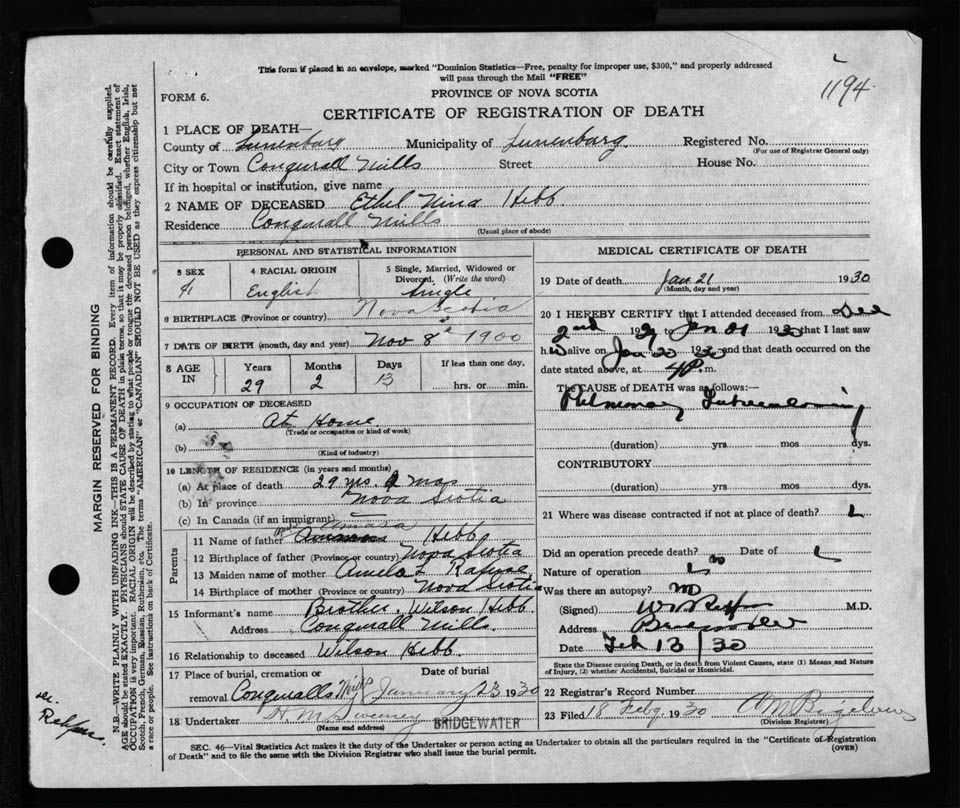 This form if placed in an envelope, marked "Dominion Statistics—Free, penalty for improper use, $300," and properly addressed
will pass through the Mail "FREE"
1194
FORM 6.
PROVINCE OF NOVA SCOTIA
CERTIFICATE OF REGISTRATION OF DEATH
1 PLACE OF DEATH—
County of Lunenburg Municipality of Lunenburg Registered No.
(For use of Registrar General only)
City or Town Conqurall Mills Street House No.
If in hospital or institution, give name
2 NAME OF DECEASED Ethel Nina Hebb
Residence Conqurall Mills
(Usual place of abode)
PERSONAL AND STATISTICAL INFORMATION
3 SEX 4 RACIAL ORIGIN 5 Single, Married, Widowed or
Divorced. (Write the word)
English Single
6 BIRTHPLACE (Province or country) Nova Scotia
7 DATE OF BIRTH (month, day and year) Nov 8 1900
8 AGE IN Years Months Days If less than one day,
29 2 13 hrs. or min.
9 OCCUPATION OF DECEASED
(a) At Home
(Trade or occupation or kind of work)
(b)
(Kind of industry)
10 LENGTH OF RESIDENCE (in years and months)
(a) At place of death 29 yrs. 2 mos
(b) In province Nova Scotia
(c) In Canada (if an immigrant)
Parents
11 Name of father Amasa Hebb
12 Birthplace of father (Province or country) Nova Scotia
13 Maiden name of mother
14 Birthplace of mother (Province or country) Nova Scotia
15 Informant's name Brother, Wilson Hebb
Address Conqurall Mills
16 Relationship to deceased Wilson Hebb
17 Place of burial, cremation or Date of burial
removal Conqualls Mills January 23 1930
18 Undertaker H M Sweeney BRIDGEWATER
(Name and address)
MEDICAL CERTIFICATE OF DEATH
19 Date of death Jan 21 1930
(Month, day and year)
20 I HEREBY CERTIFY that I attended deceased from Dec
2nd 1929 to Jan 21 1930 that I last saw
her alive on Jan 20 1930 and that death occurred on
date stated above, at 4 P. m.
The CAUSE OF DEATH was as follows:
Pulmonary Tuberculosis
(duration) yrs mos dys.
CONTRIBUTORY
(duration) yrs mos dys.
21 Where was disease contracted if not at place of death?
Did an operation precede death? no Date of
Nature of operation
Was there an autopsy? no
(Signed) M.D.
Address Bridgewater
Date Feb 13/30
State the Disease causing Death, or in death from Violent Causes, state (1) Means and Nature
of Injury, (2) whether Accidental, Suicidal or Homicidal.
22 Registrar's Record Number
23 Filed 18 Feby 1930
(Division Registrar)
SEC. 46—Vital Statistics Act makes it the duty of the Undertaker or person acting as Undertaker to obtain all the particulars required in the "Certificate of Registration
of Death" and to file the same with the Division Registrar who shall issue the burial permit.
(OVER)
MARGIN RESERVED FOR BINDING
N.B.—WRITE PLAINLY WITH UNFADING INK—THIS IS A PERMANENT RECORD. Every item of information should be carefully supplied.
AGE should be stated EXACTLY. PHYSICIANS should STATE CAUSE OF DEATH in plain terms, so that it may be properly classified. Exact statement of
OCCUPATION is very important. RACIAL ORIGIN will be described by stating to what people or tongue the deceased person belonged, whether English, Irish,
Scotch, French, German, Russian, Ruthenian, etc. The terms "AMERICAN" or "CANADIAN" SHOULD NOT BE USED as they express citizenship but not
a race or people. See instructions on back of Certificate.